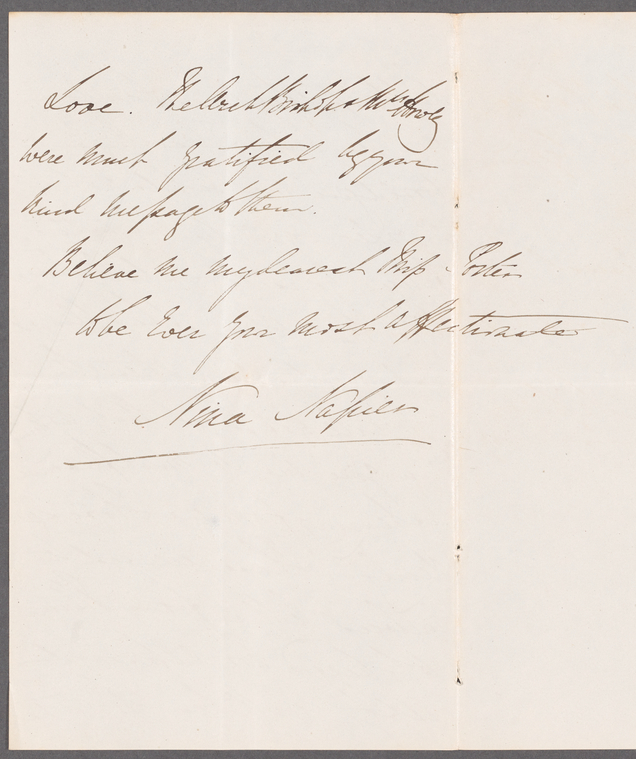 Love. The Arch Bishop & Mrs Howley
were much gratified by your
kind message to them.
Believe me my dearest Miss Porter
to be Ever your most affectionate
Nina Napier